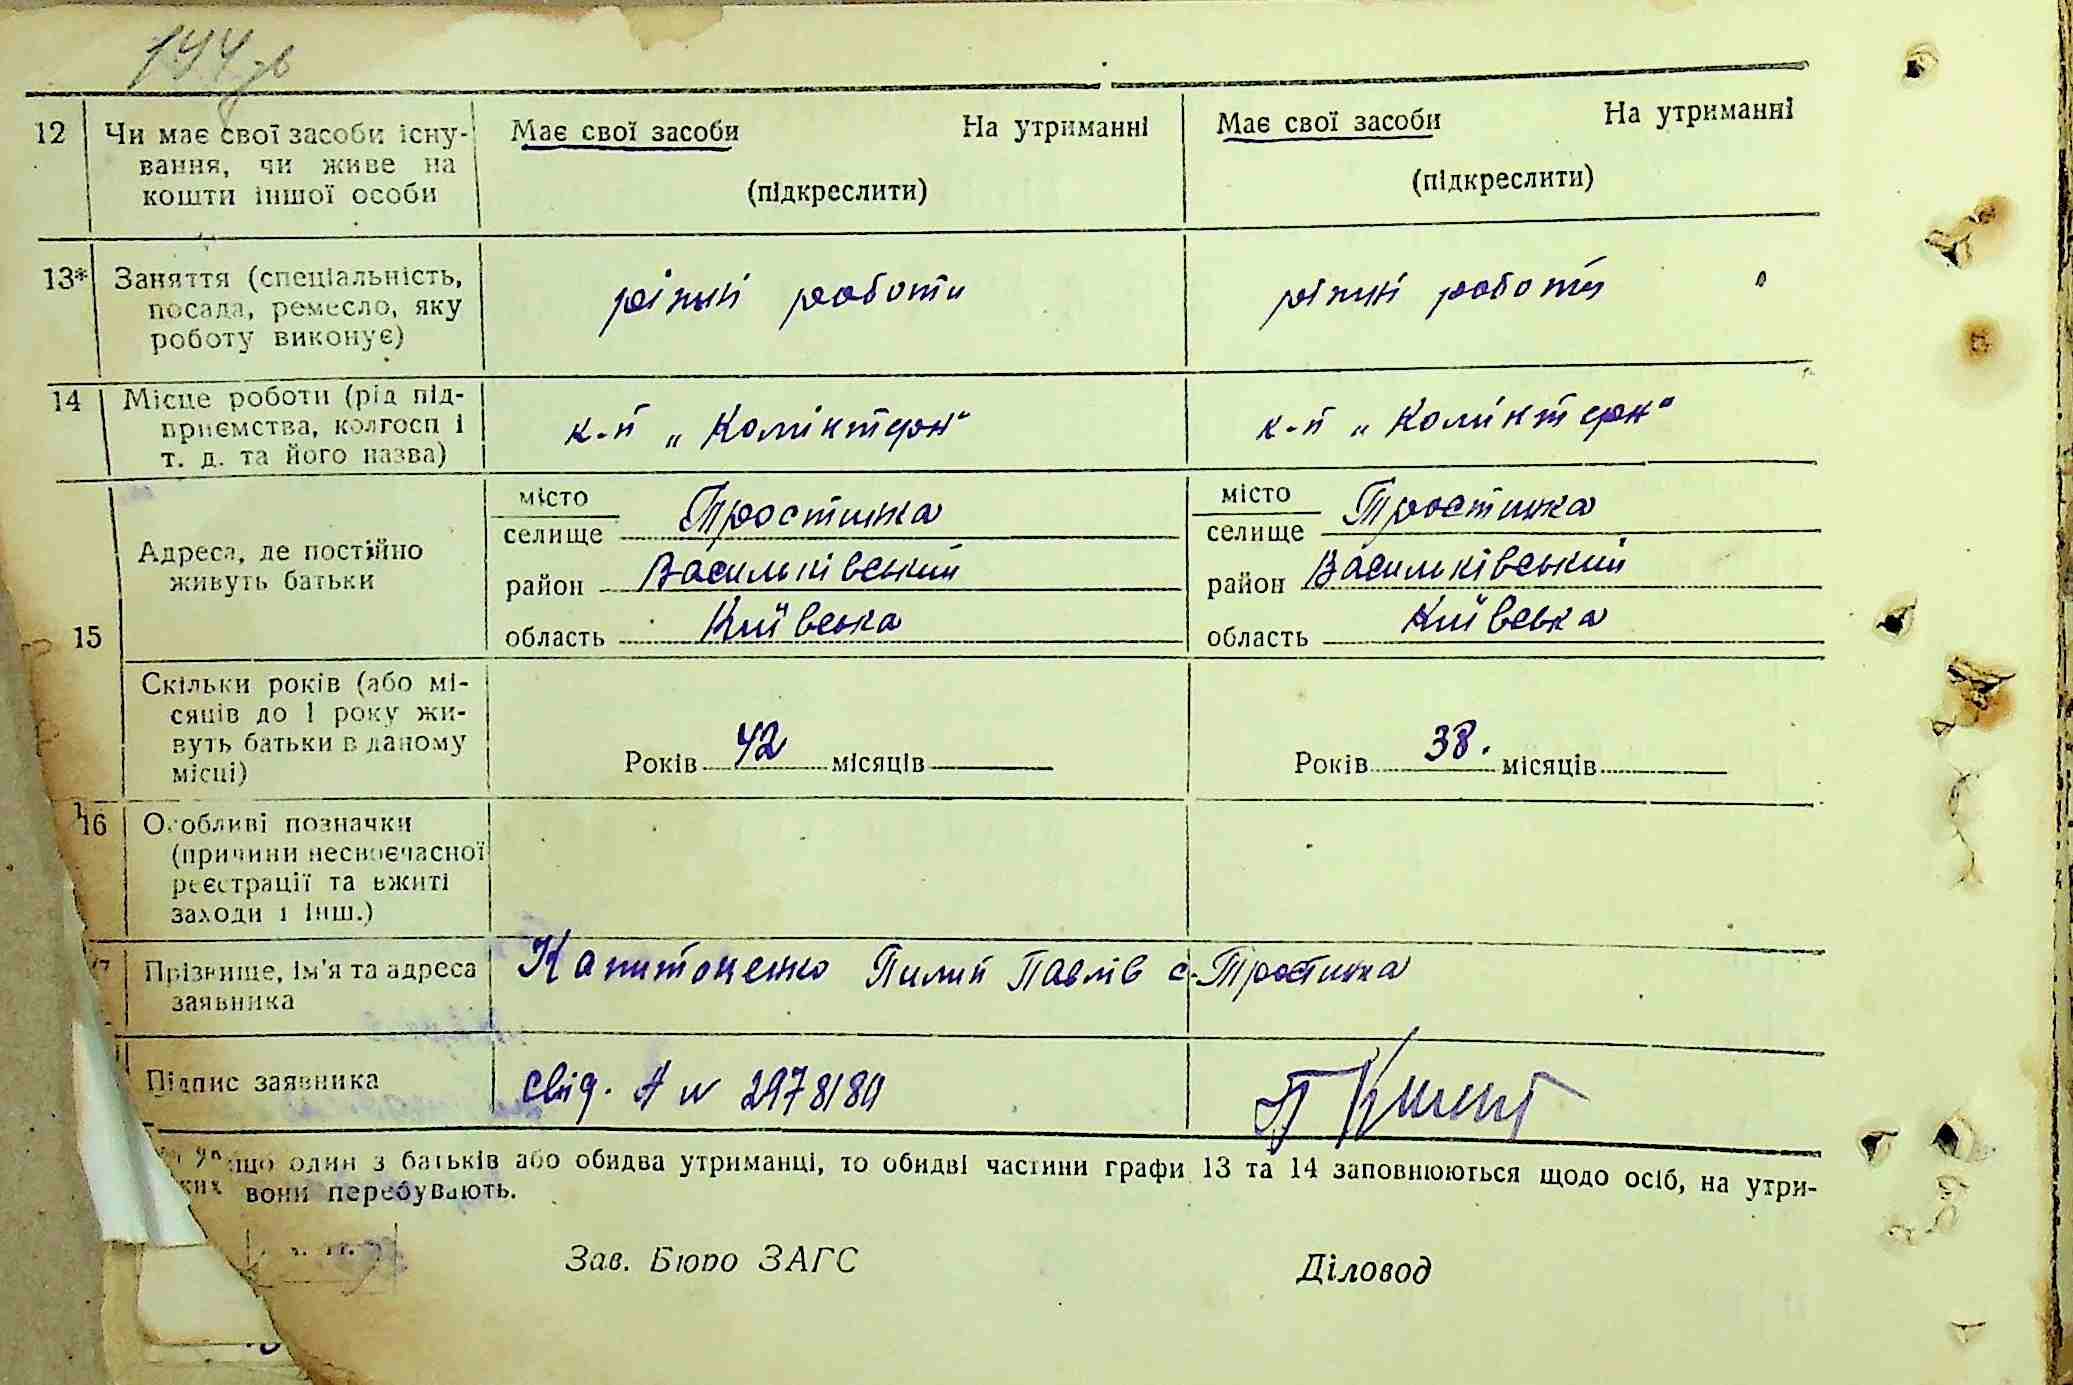 144зв
12 Чи має свої засоби існу-
вання, чи живе на
кошти іншої особи
Має свої засоби На утриманні
(підкреслити)
Має свої засоби На утриманні
(підкреслити)
13* Заняття (спеціальність,
посада, ремесло, яку
роботу виконує)
різні роботи
різні роботи
14 Місце роботи (рід під-
приємства, колгосп і
т. д. та його назва)
к-п „Комінтерн"
к-п „Комінтерн"
15
Адреса, де постійно
живуть батьки
місто
селище Тростинка
район Васильківський
область Київська
місто
селище Тростинка
район Васильківський
область Київська
Скільки років (або мі-
сяців до 1 року жи-
вуть батьки в даному
місці)
Років 42 місяців
Років 38. місяців
16 Особливі позначки
(причини несвоєчасної
реєстрації та вжиті
заходи і інш.)
7 Прізвище, ім'я та адреса
заявника
Капитоненко Пилип Павлів с. Тростинка
Підпис заявника
свід. А №
один з батьків або обидва утриманці, то обидві частини графи 13 та 14 заповнюються щодо осіб, на утри-
ких вони перебувають.
Зав. Бюро ЗАГС
Діловод